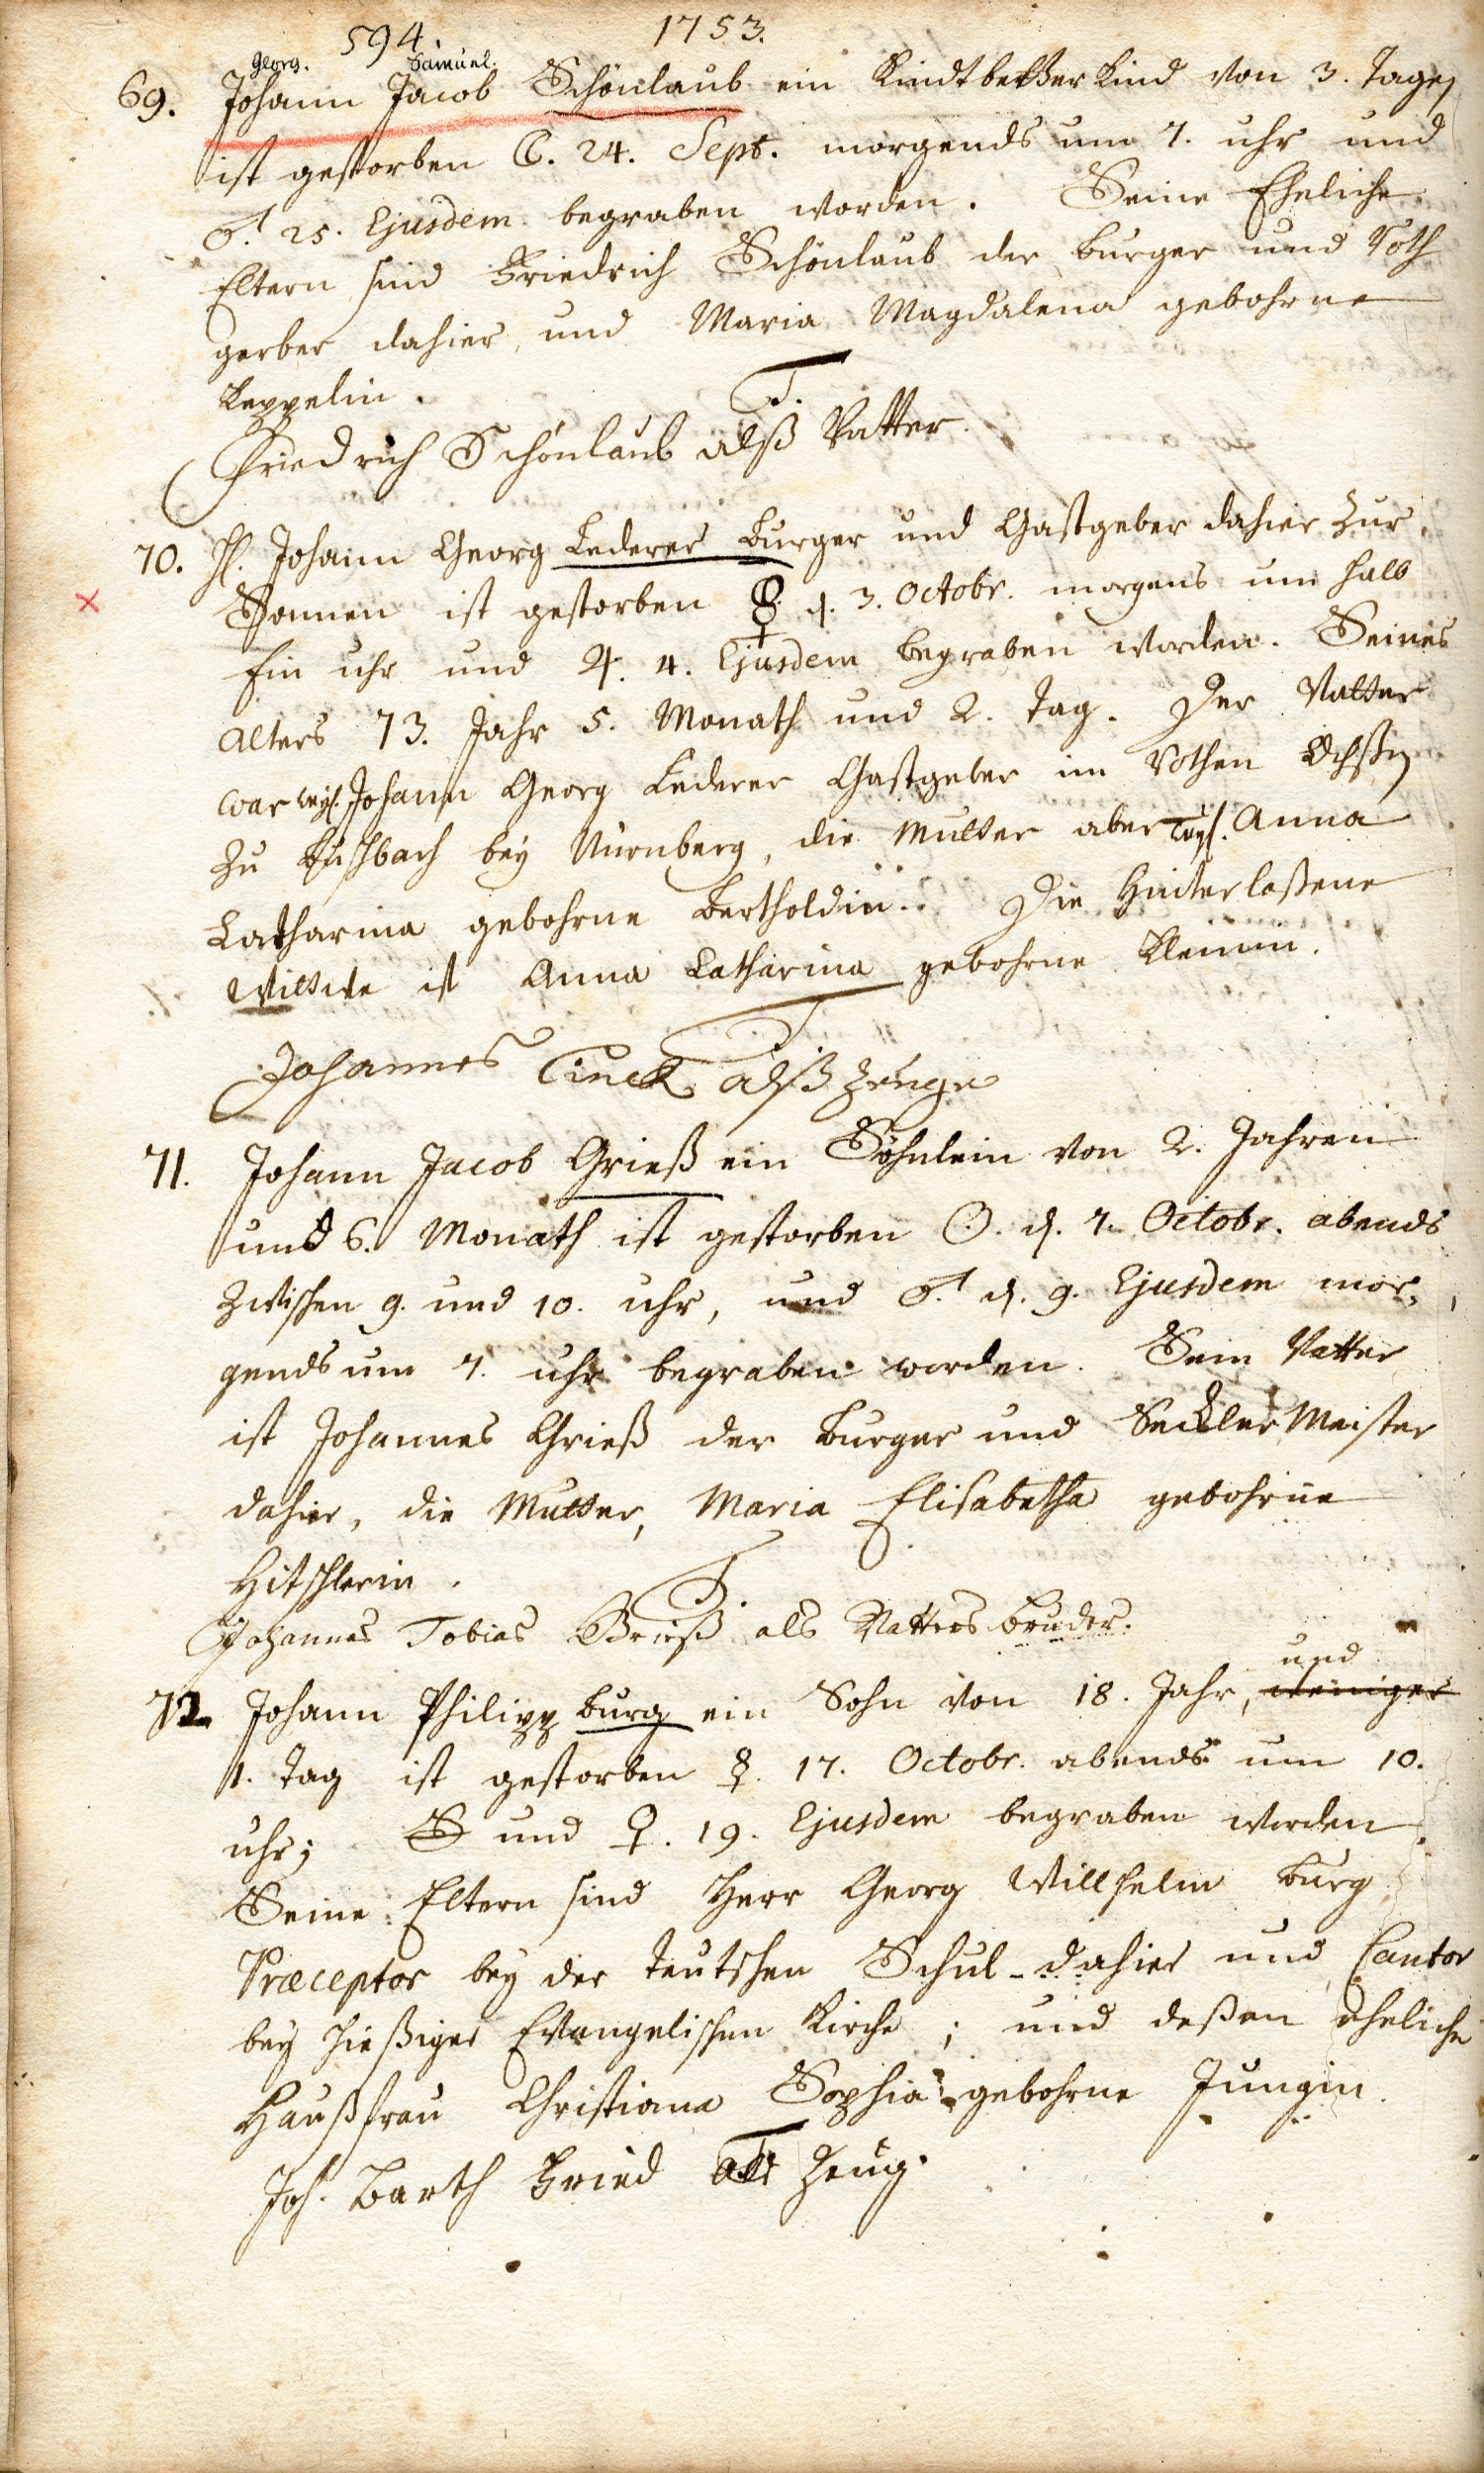 594. 1753.
Georg. Samuel.
69. Johann Jacob Schönlaub ein Kindtbetter Kind von 3. Tagen
ist gestorben ☾. 24. Sept. morgends um 7. uhr und
♂. 25. Ejusdem begraben worden. Seine Eheliche
Eltern sind Friedrich Schönlaub der burger und Roth
gerber dahier, und Maria Magdalena gebohrne
Keppelin.
T.
Friedrich Schönlaub alß Vatter.
70. H. Johann Georg Lederer burger und Gastgeber dahier Zur
Sonnen ist gestorben ☿ d. 3. Octobr. morgens um halb
Ein uhr und ♃. 4. Ejusdem begraben worden. Seines
alters 73. Jahr 5. Monath und 2. Tag. Der Vatter
war weyl. Johann Georg Lederer Gastgeber im rothen Ochßen
Zu bey Nürnberg, die Mutter aber weyl. Anna
Catharina gebohrne Bertholdin. Die Hinterlaßene
Wittwe ist Anna Catharina gebohrne Klemmin.
T.
Johannes Finck alß Zeuge
71. Johann Jacob Grieß ein Söhnlein von 2. Jahren
und 6. Monath ist gestorben ☉. d. 7. Octobr. abends
zwischen 9. und 10. uhr, und ♂. d. 9. Ejusdem mor,
gends um 7. uhr begraben worden. Sein Vatter
ist Johannes Grieß der burger und Seckler Meister
dahier, die Mutter, Maria Elisabetha gebohrne
Hitschlerin.
T.
Johannes Tobias Grieß als Vatters bruder.
72. Johann Philipp burg ein Sohn von 18. Jahr, weniger und
1. Tag ist gestorben ☿. 17. Octobr. abends um 10.
uhr; S und ♀. 19. Ejusdem begraben worden.
Seine Eltern sind Herr Georg Willhelm burg
Præceptor bey der Teutschen Schul dahier und Cantor
bey hießiger Evangelischen Kirche; und deßen eheliche
Haußfrau Christiana Sophia gebohrne Jungin.
T
Joh. Barth Fried als Zeug.